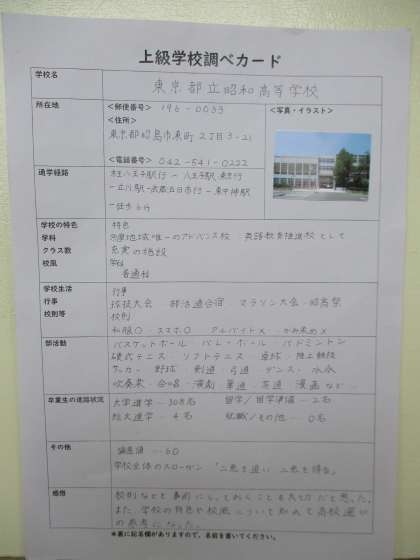 上級学校調べカード
学校名
東京都立昭和高等学校
所在地
<郵便番号> 196-0033
<住所>
東京都昭島市東町2丁目3-21
<電話番号> 042-541-0222
<写真・イラスト>
通学経路
八王子駅
立川駅 武蔵五日市行 東中神駅
徒歩
学校の特色
学科
クラス数
校風
特色
地域唯一のアドバンス校 英語教育推進校として
充実の施設
学科
普通科
学校生活
行事
校則等
行事
球技大会 部活連合宿 マラソン大会
校則
私服○ スマホ○ アルバイト× かみ染め×
部活動
バスケットボール・バレーボール・バドミントン
硬式テニス・ソフトテニス・卓球・陸上競技
サッカー・野球・剣道・弓道・ダンス・水泳
吹奏楽・合唱・演劇 華道・茶道 漫画 など
卒業生の進路状況
大学進学 名 留学/留学準備 2名
短大進学 4名 就職/その他 0名
その他
偏差値 60
学校全体のスローガン 「二兎を追い 二兎を得る」
感想
校則なども事前にしておくことも大切だと思った。
また、学校の特色や校風についても知れて高校選び
の参考になった。
＊裏に記名欄がありますので、名前を書いてください。